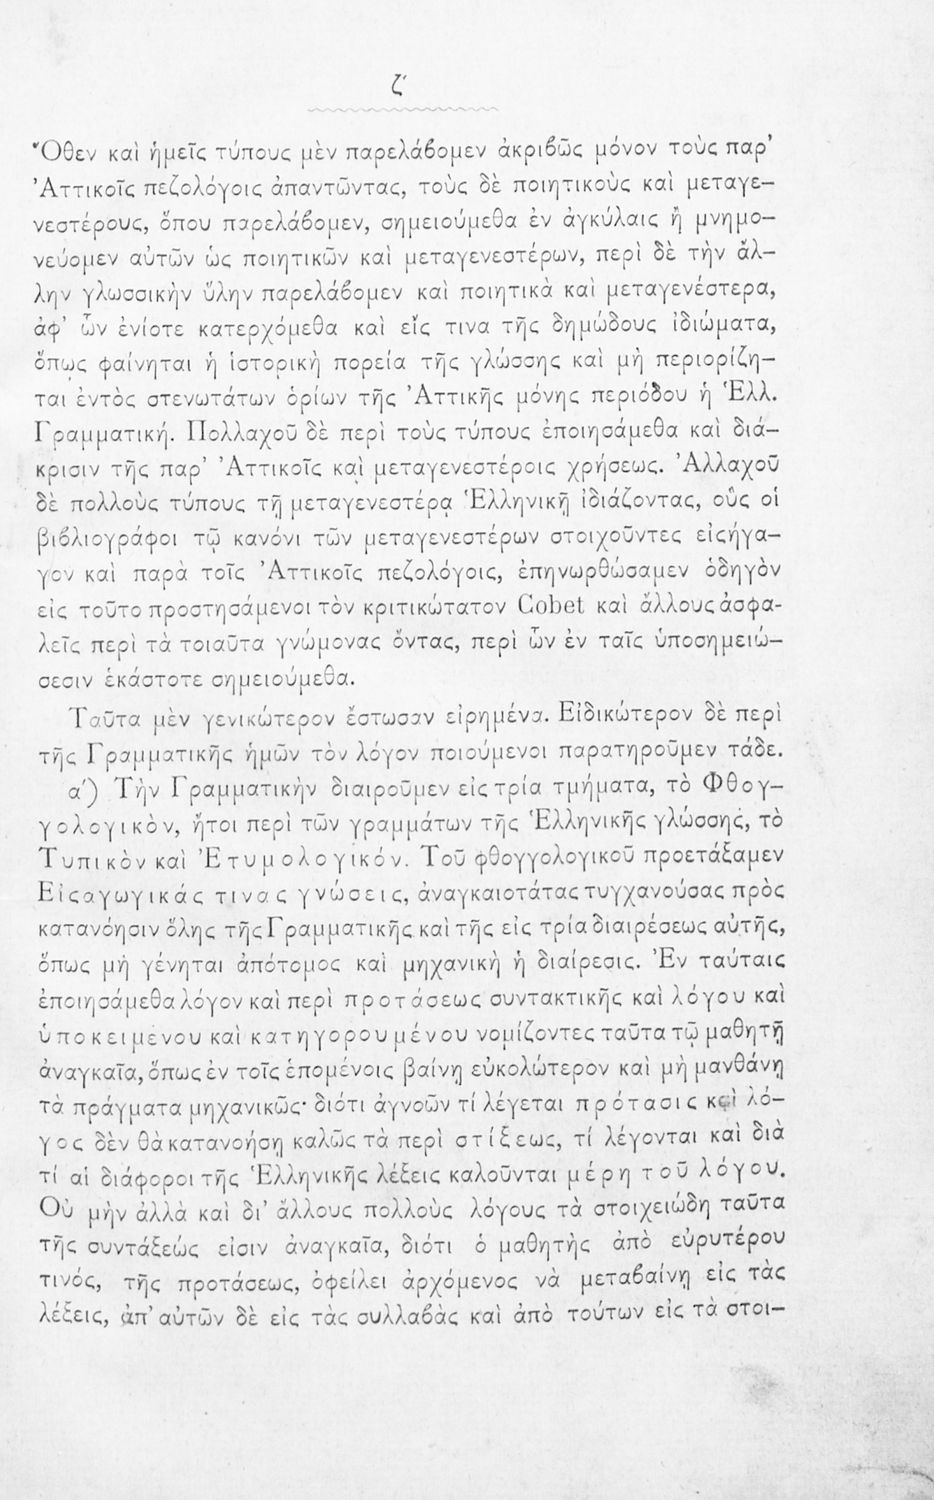 ζ′
Ὅθεν καὶ ἡμεῖς τύπους μὲν παρελάβομεν ἀκριβῶς μόνον τοὺς παρ’
Ἀττικοῖς πεζολόγοις ἀπαντῶντας, τοὺς δὲ ποιητικοὺς καὶ μεταγε-
νεστέρους, ὅπου παρελάβομεν, σημειούμεθα ἐν ἀγκύλαις ἢ μνημο-
νεύομεν αὐτῶν ὡς ποιητικῶν καὶ μεταγενεστέρων, περὶ δὲ τὴν ἄλ-
λην γλωσσικὴν ὕλην παρελάβομεν καὶ ποιητικὰ καὶ μεταγενέστερα,
ἀφ’ ὧν ἐνίοτε κατερχόμεθα καὶ εἴς τινα τῆς δημώδους ἰδιώματα,
ὅπως φαίνηται ἡ ἱστορικὴ πορεία τῆς γλώσσης καὶ μὴ περιορίζη-
ται ἐντὸς στενωτάτων ὁρίων τῆς Ἀττικῆς μόνης περιόδου ἡ Ἑλλ.
Γραμματική. Πολλαχοῦ δὲ περὶ τοὺς τύπους ἐποιησάμεθα καὶ διά-
κρισιν τῆς παρ’ Ἀττικοῖς καὶ μεταγενεστέροις χρήσεως. Ἀλλαχοῦ
δὲ πολλοὺς τύπους τῇ μεταγενεστέρᾳ Ἑλληνικῇ ἰδιάζοντας, οὓς οἱ
βιβλιογράφοι τῷ κανόνι τῶν μεταγενεστέρων στοιχοῦντες εἰςήγα-
γον καὶ παρὰ τοῖς Ἀττικοῖς πεζολόγοις, ἐπηνωρθώσαμεν ὁδηγὸν
εἰς τοῦτο προστησάμενοι τὸν κριτικώτατον Cobet καὶ ἄλλους ἀσφα-
λεῖς περὶ τὰ τοιαῦτα γνώμονας ὄντας, περὶ ὧν ἐν ταῖς ὑποσημειώ-
σεσιν ἑκάστοτε σημειούμεθα.
Ταῦτα μὲν γενικώτερον ἔστωσαν εἰρημένα. Εἰδικώτερον δὲ περὶ
τῆς Γραμματικῆς ἡμῶν τὸν λόγον ποιούμενοι παρατηροῦμεν τάδε.
α′) Τὴν Γραμματικὴν διαιροῦμεν εἰς τρία τμήματα, τὸ Φθογ-
γολογικὸν, ἤτοι περὶ τῶν γραμμάτων τῆς Ἑλληνικῆς γλώσσης, τὸ
Τυπικὸν καὶ Ἐτυμολογικόν. Τοῦ φθογγολογικοῦ προετάξαμεν
Εἰςαγωγικάς τινας γνώσεις, ἀναγκαιοτάτας τυγχανούσας πρὸς
κατανόησιν ὅλης τῆς Γραμματικῆς καὶ τῆς εἰς τρία διαιρέσεως αὐτῆς,
ὅπως μὴ γένηται ἀπότομος καὶ μηχανικὴ ἡ διαίρεσις. Ἐν ταύταις
ἐποιησάμεθα λόγον καὶ περὶ προτάσεως συντακτικῆς καὶ λόγου καὶ
ὑποκειμένου καὶ κατηγορουμένου νομίζοντες ταῦτα τῷ μαθητῇ
ἀναγκαῖα, ὅπως ἐν τοῖς ἑπομένοις βαίνῃ εὐκολώτερον καὶ μὴ μανθάνῃ
τὰ πράγματα μηχανικῶς· διότι ἀγνοῶν τί λέγεται πρότασις καὶ λό-
γος δὲν θὰ κατανοήσῃ καλῶς τὰ περὶ στίξεως, τί λέγονται καὶ διὰ
τί αἱ διάφοροι τῆς Ἑλληνικῆς λέξεις καλοῦνται μέρη τοῦ λόγου.
Οὐ μὴν ἀλλὰ καὶ δι’ ἄλλους πολλοὺς λόγους τὰ στοιχειώδη ταῦτα
τῆς συντάξεώς εἰσιν ἀναγκαῖα, διότι ὁ μαθητὴς ἀπὸ εὐρυτέρου
τινός, τῆς προτάσεως, ὀφείλει ἀρχόμενος νὰ μεταβαίνῃ εἰς τὰς
λέξεις, ἀπ’ αὐτῶν δὲ εἰς τὰς συλλαβὰς καὶ ἀπὸ τούτων εἰς τὰ στοι-